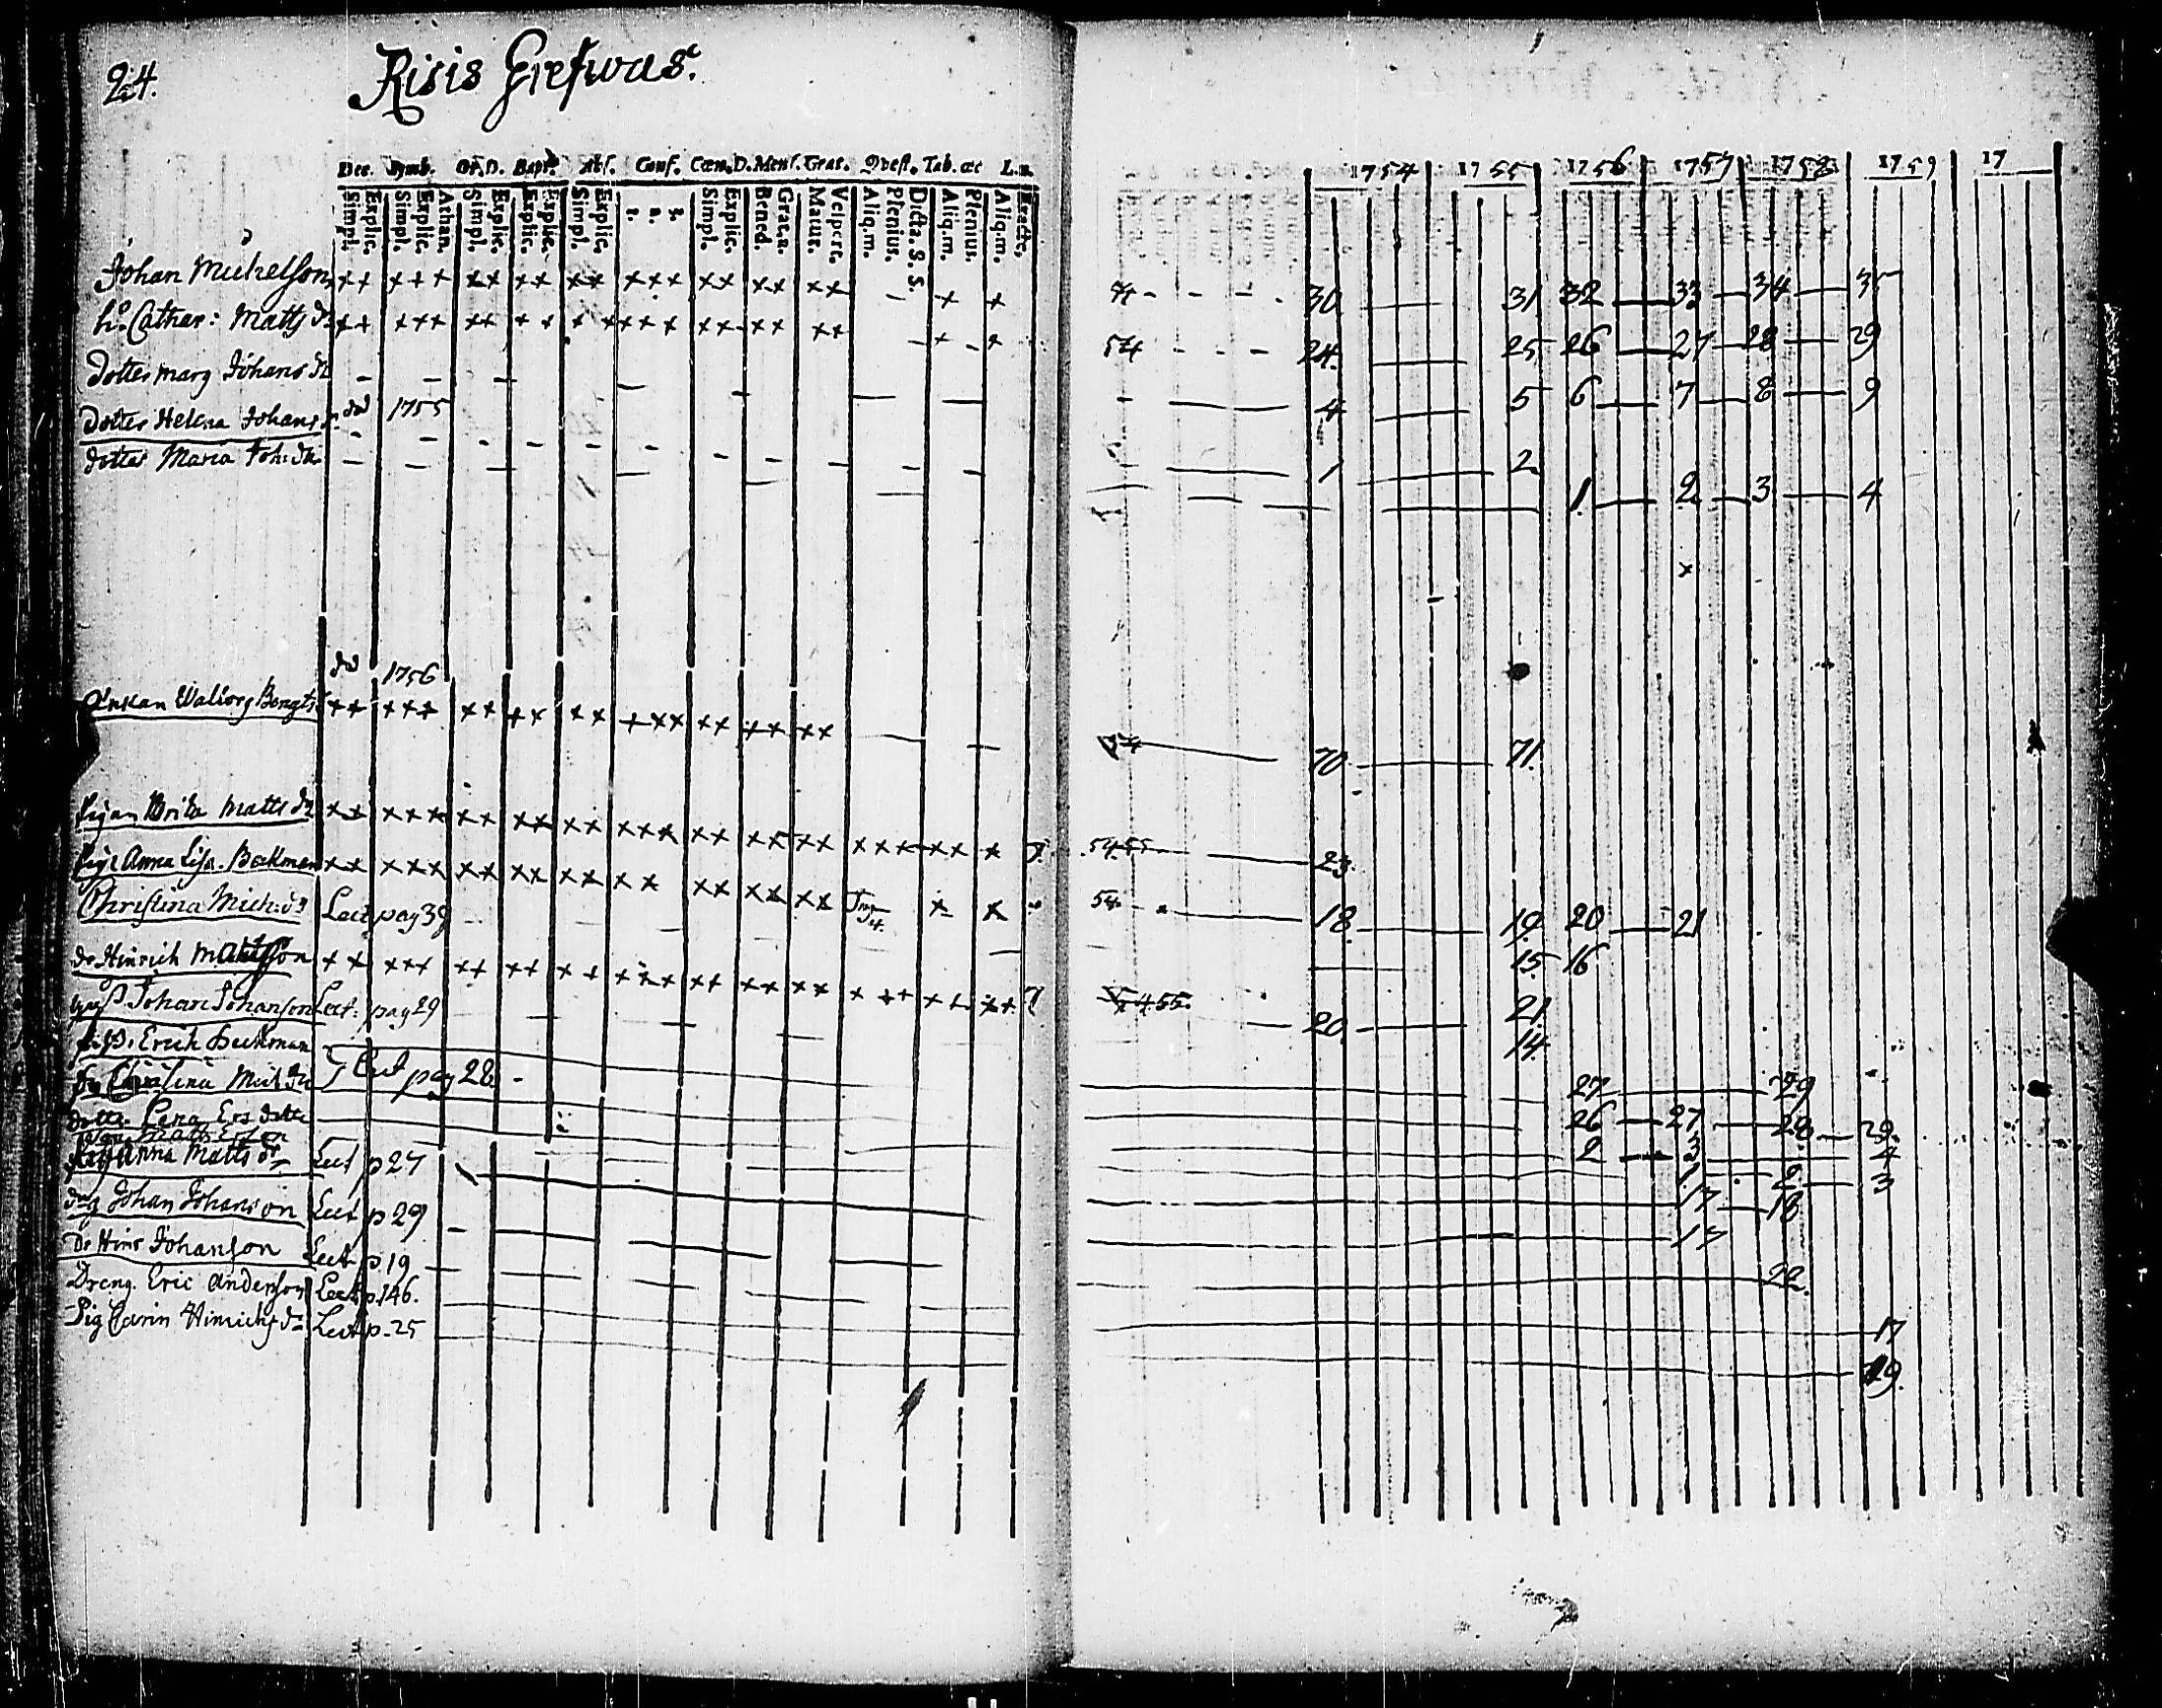 24. Risis Grefwas.
Dec. Symb. Or.D. Bapt. Abs. Conf. Cœn.D. Mens. Grat. Qvest. Tab. œc L.n.
Simpl. Explic. Simpl. Explic. Athan. Simpl. Explic. Explic. Explic. Simpl. Explic. 1. 2. 3. Simpl. Explic. Bened. Grat.a. Matut. Vespert. Aliq.m. Plenius. Dicta. S. S. Aliq.m. Plenius. Aliq.m. Exacte.
1754 1755 1756 1757 1758 1759 17
Johan Michelsson ++ +++ ++ ++ ++ +++ ++ ++ ++ - + + 30 31 32 33 34 35
h. Cathar: Matts dr ++ +++ ++ ++ + ++++ ++ ++ ++ - + - + 54 - - - 24. 25 26 27 28 29
dotter Marg Johans dr - 4 5 6 7 8 9
död 1755
dotter Helena Johans 1 2
dotter Maria Joh: dr 1 2 3 4
död 1756
Enkan Walborg Bengts ++ +++ ++ ++ ++ +++ ++ ++ ++ 54 70 71
Pigan Brita Matts dr ++ +++ ++ ++ ++ +++ ++ ++ ++ +++ ++ + 54.55 23.
Pig: Anna Lisa Beckman ++ +++ ++ ++ ++ ++ ++ ++ ++ + + 54 18. 19 20 21
Christina Mich: dr Lect pag 39 15 16
dr Hinrich Mattsson ++ +++ ++ ++ ++ +++ ++ ++ ++ + ++ ++ ++ 5455. 20 21
Johan Johansson Lect: pag 29 14
Erich Beckman 27 29
Christina Mich dr Lect pag 28 - 26 27 28 29
dotter Lena Ers dotter 2 3 4
Matts Erson 1 2 3
Pig Anna Matts dr Lect p 27 17 18
drg Johan Johanson Lect p 29 17
Dr Hinr Johanson Lect p 19 22.
Dreng Eric Anderson Lect p. 146. 17
Pig Carin Hinrichs dr Lect p. 25 19.